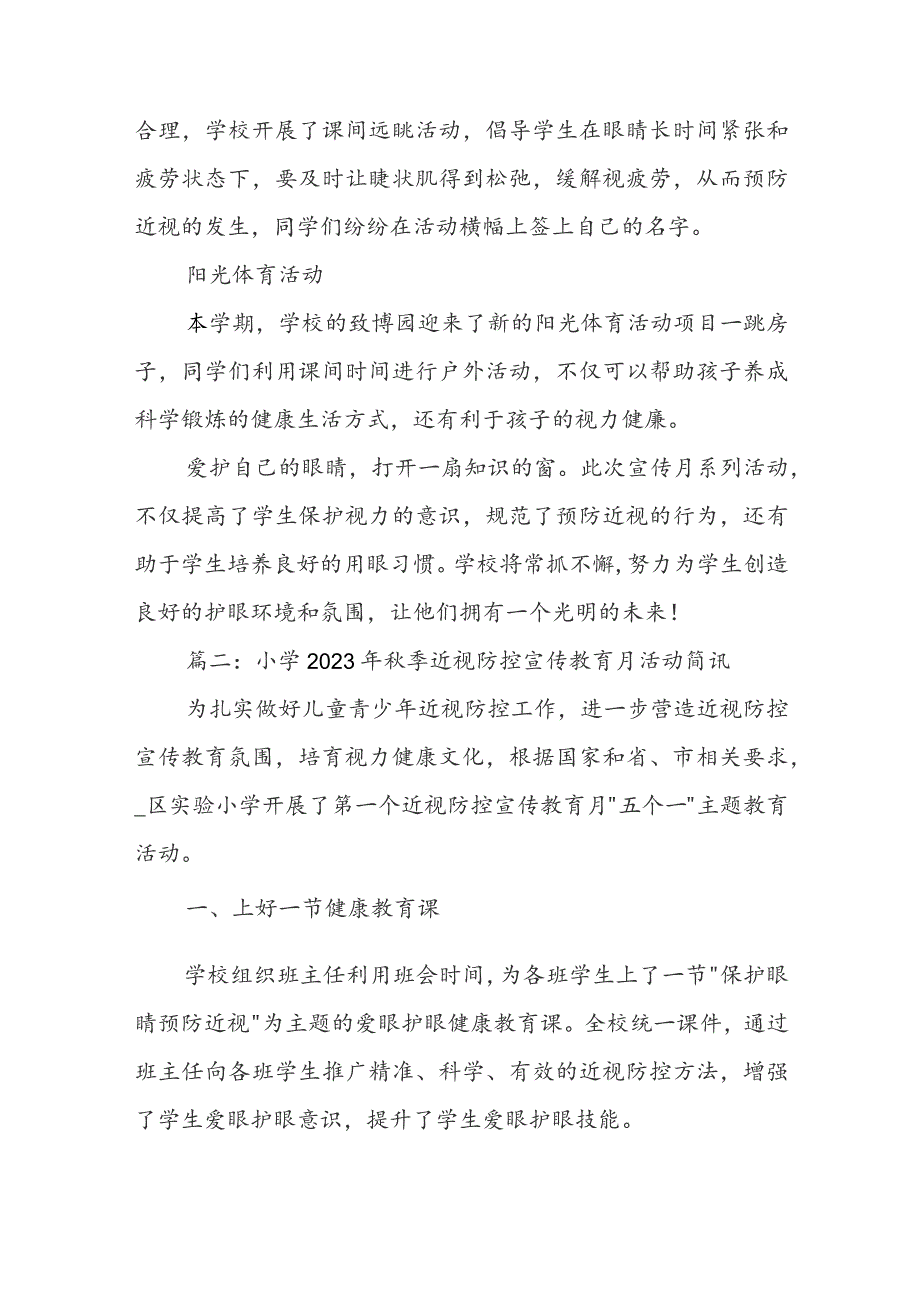 合理，学校开展了课间远眺活动，倡导学生在眼睛长时间紧张和
疲劳状态下，要及时让睫状肌得到松弛，缓解视疲劳，从而预防
近视的发生，同学们纷纷在活动横幅上签上自己的名字。
阳光体育活动
本学期，学校的致博园迎来了新的阳光体育活动项目一跳房
子，同学们利用课间时间进行户外活动，不仅可以帮助孩子养成
科学锻炼的健康生活方式，还有利于孩子的视力健廉。
爱护自己的眼睛，打开一扇知识的窗。此次宣传月系列活动，
不仅提高了学生保护视力的意识，规范了预防近视的行为，还有
助于学生培养良好的用眼习惯。学校将常抓不懈，努力为学生创造
良好的护眼环境和氛围，让他们拥有一个光明的未来！
篇二：小学2023年秋季近视防控宣传教育月活动简讯
为扎实做好儿童青少年近视防控工作，进一步营造近视防控
宣传教育氛围，培育视力健康文化，根据国家和省、市相关要求，
_区实验小学开展了第一个近视防控宣传教育月"五个一"主题教育
活动。
一、上好一节健康教育课
学校组织班主任利用班会时间，为各班学生上了一节"保护眼
睛预防近视"为主题的爱眼护眼健康教育课。全校统一课件，通过
班主任向各班学生推广精准、科学、有效的近视防控方法，增强
了学生爱眼护眼意识，提升了学生爱眼护眼技能。